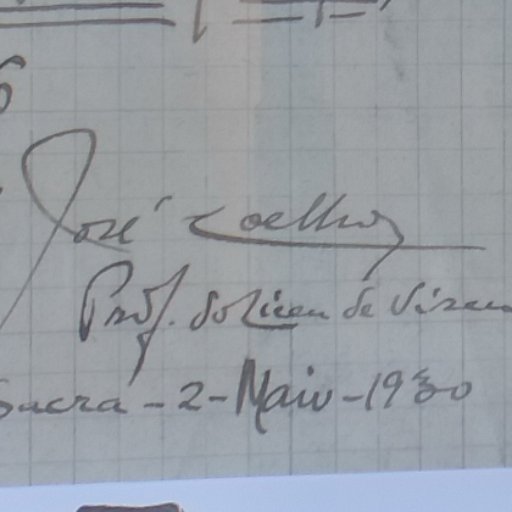 José Coelho
Prof. do Liceu de Viseu
Sacra - 2 - Maio - 1930